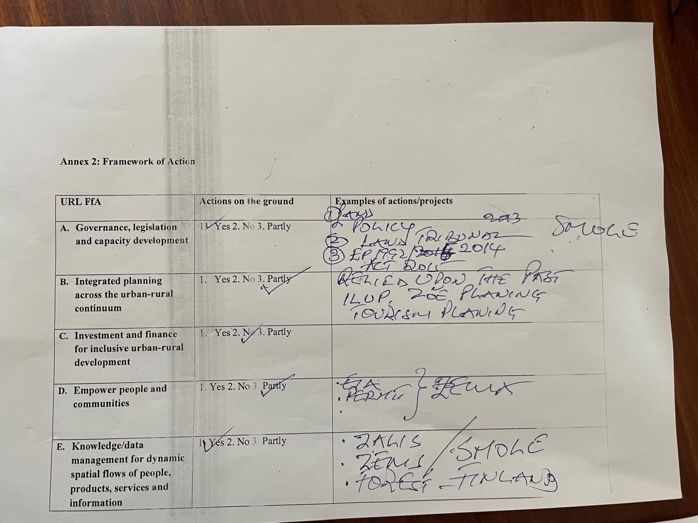 Annex 2: Framework of Action
URL FfA
Actions on the ground
Examples of actions/projects
A. Governance, legislation
and capacity development
1. Yes 2. No 3. Partly
① LAND
POLICY
② LAND TRIBUNAL
③ 2014
ACT
SMOLE
B. Integrated planning
across the urban-rural
continuum
1. Yes 2. No 3. Partly
RELIED UPON THE PAST
ILUP, PLANING
TOURISM PLANING
C. Investment and finance
for inclusive urban-rural
development
1. Yes 2. No 3. Partly
D. Empower people and
communities
1. Yes 2. No 3. Partly
• PERMIT
E. Knowledge/data
management for dynamic
spatial flows of people,
products, services and
information
1. Yes 2. No 3. Partly
• ZALIS
• ZEMIS / SMOLE
• FOREST - FINLAND